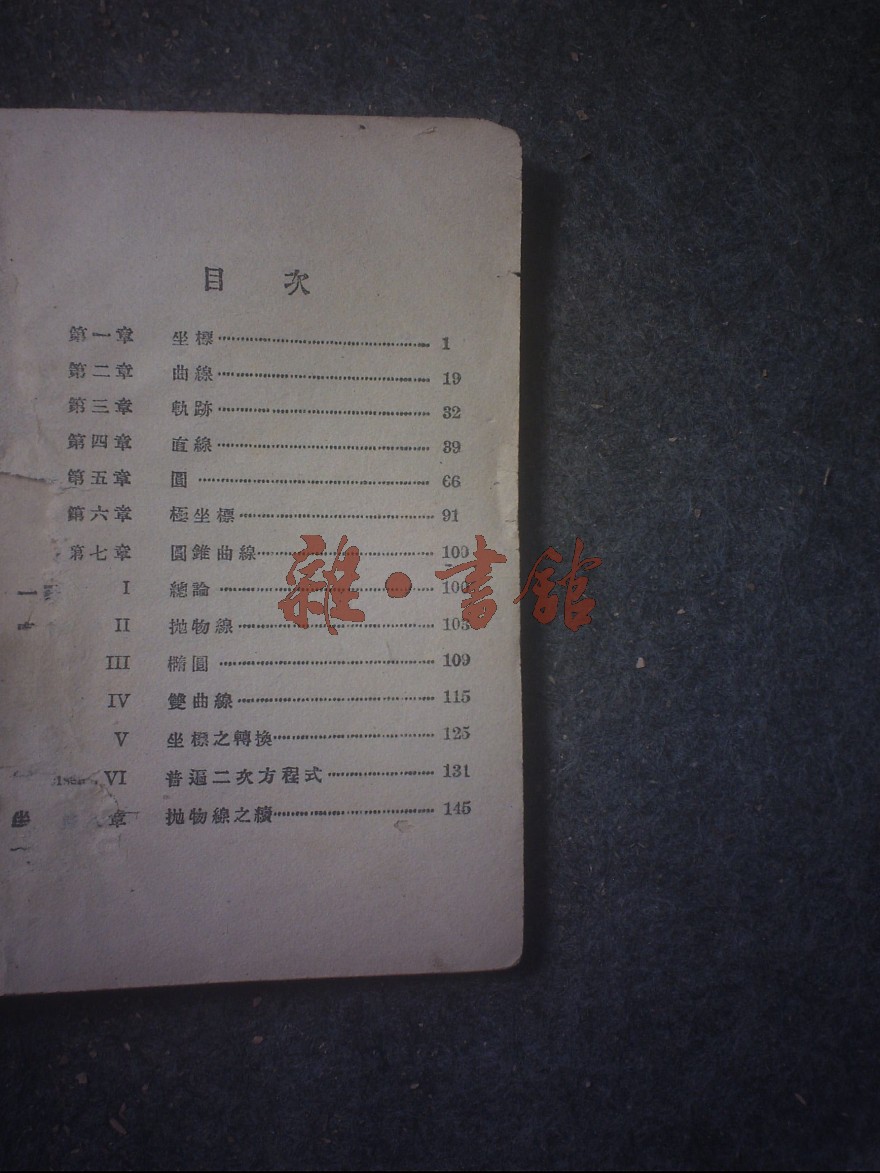 目次
第一章 坐標 1
第二章 曲線 19
第三章 軌跡 32
第四章 直線 39
第五章 圓 66
第六章 極坐標 91
第七章 圓錐曲線 100
I 總論 100
II 拋物線 103
III 橢圓 109
IV 雙曲線 115
V 坐標之轉換 125
VI 普遍二次方程式 131
章 拋物線之續 145
雜·書館